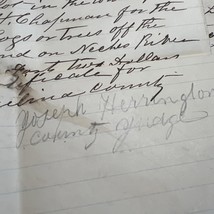 in the
Chapman for the
Logs or trees off the
and on Neches River
that two Dollars
Certificate for
Angelina County
Joseph Herrington
County Judge